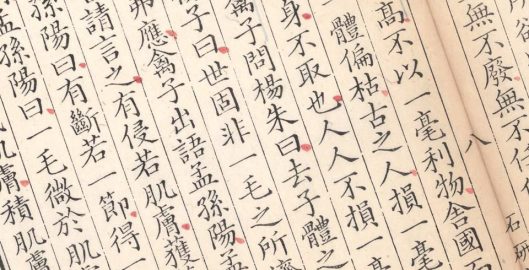 無不廢無不任
八
石
高不以一毫利物舍國
一體偏枯古之人損一毫
身不取也人人不損一毫
禽子問楊朱曰去子體之
子曰世固非一毛之所濟
弗應禽子出語孟孫陽孟
請言之有侵若肌膚獲
孫陽曰有斷若一節得一
孟孫陽曰一毛微於肌
膚積肌膚